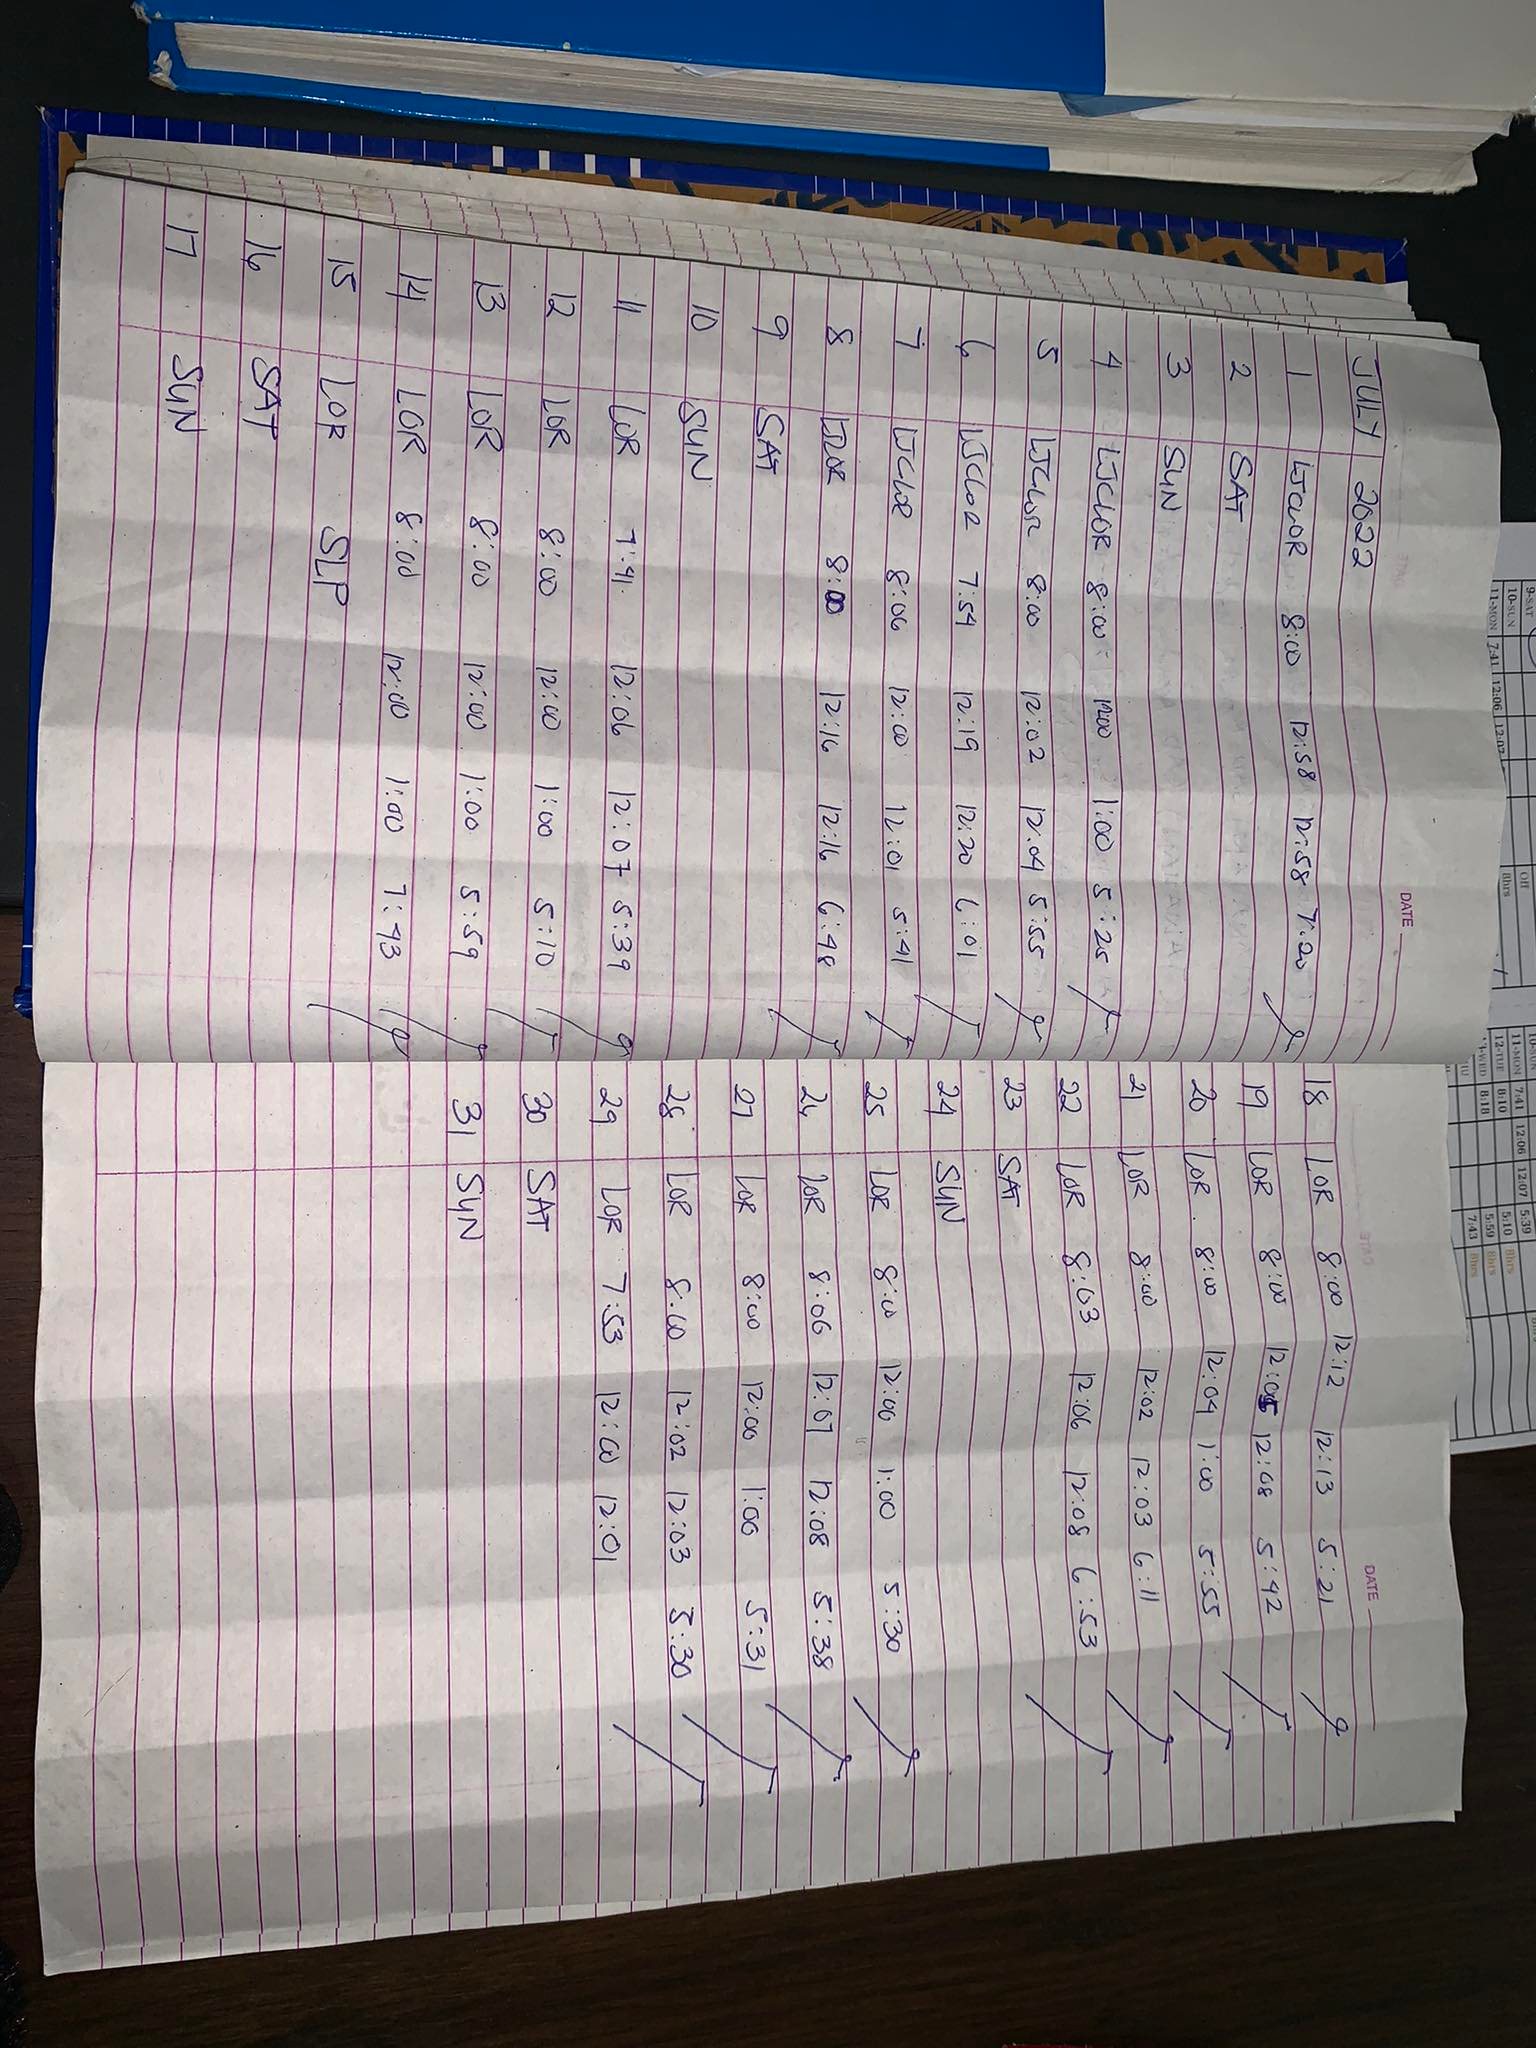 DATE
JULY 2022
1 LJCLOR 8:00 12:58 12:58 7:20
2 SAT
3 SUN
4 LJCLOR 8:00 12:00 1:00 5:25
5 LJCLOR 8:00 12:02 12:04 5:55
6 LJCLOR 7:54 12:19 12:20 6:01
7 LJCLOR 8:06 12:00 12:01 5:41
8 LJLOR 8:00 12:16 12:16 6:48
9 SAT
10 SUN
11 LOR 7:41 12:06 12:07 5:39
12 LOR 8:00 12:00 1:00 5:10
13 LOR 8:00 12:00 1:00 5:59
14 LOR 8:00 12:00 1:00 7:43
15 LOR SLP
16 SAT
17 SUN
DATE
18 LOR 8:00 12:12 12:13 5:21
19 LOR 8:00 12:05 12:08 5:42
20 LOR 8:00 12:04 1:00 5:55
21 LOR 8:00 12:02 12:03 6:11
22 LOR 8:03 12:06 12:08 6:53
23 SAT
24 SUN
25 LOR 8:00 12:00 1:00 5:30
26 LOR 8:06 12:07 12:08 5:38
27 LOR 8:00 12:00 1:00 5:31
28 LOR 8:00 12:02 12:03 5:30
29 LOR 7:53 12:00 12:01
30 SAT
31 SUN
9-SAT
10-SUN Off
11-MON 7:41 12:06 12:07 8hrs
11-MON 7:41 12:06 12:07 5:39
12-TUE 8:10 5:10 8hrs
8:18 5:59 8hrs
7:43 8hrs